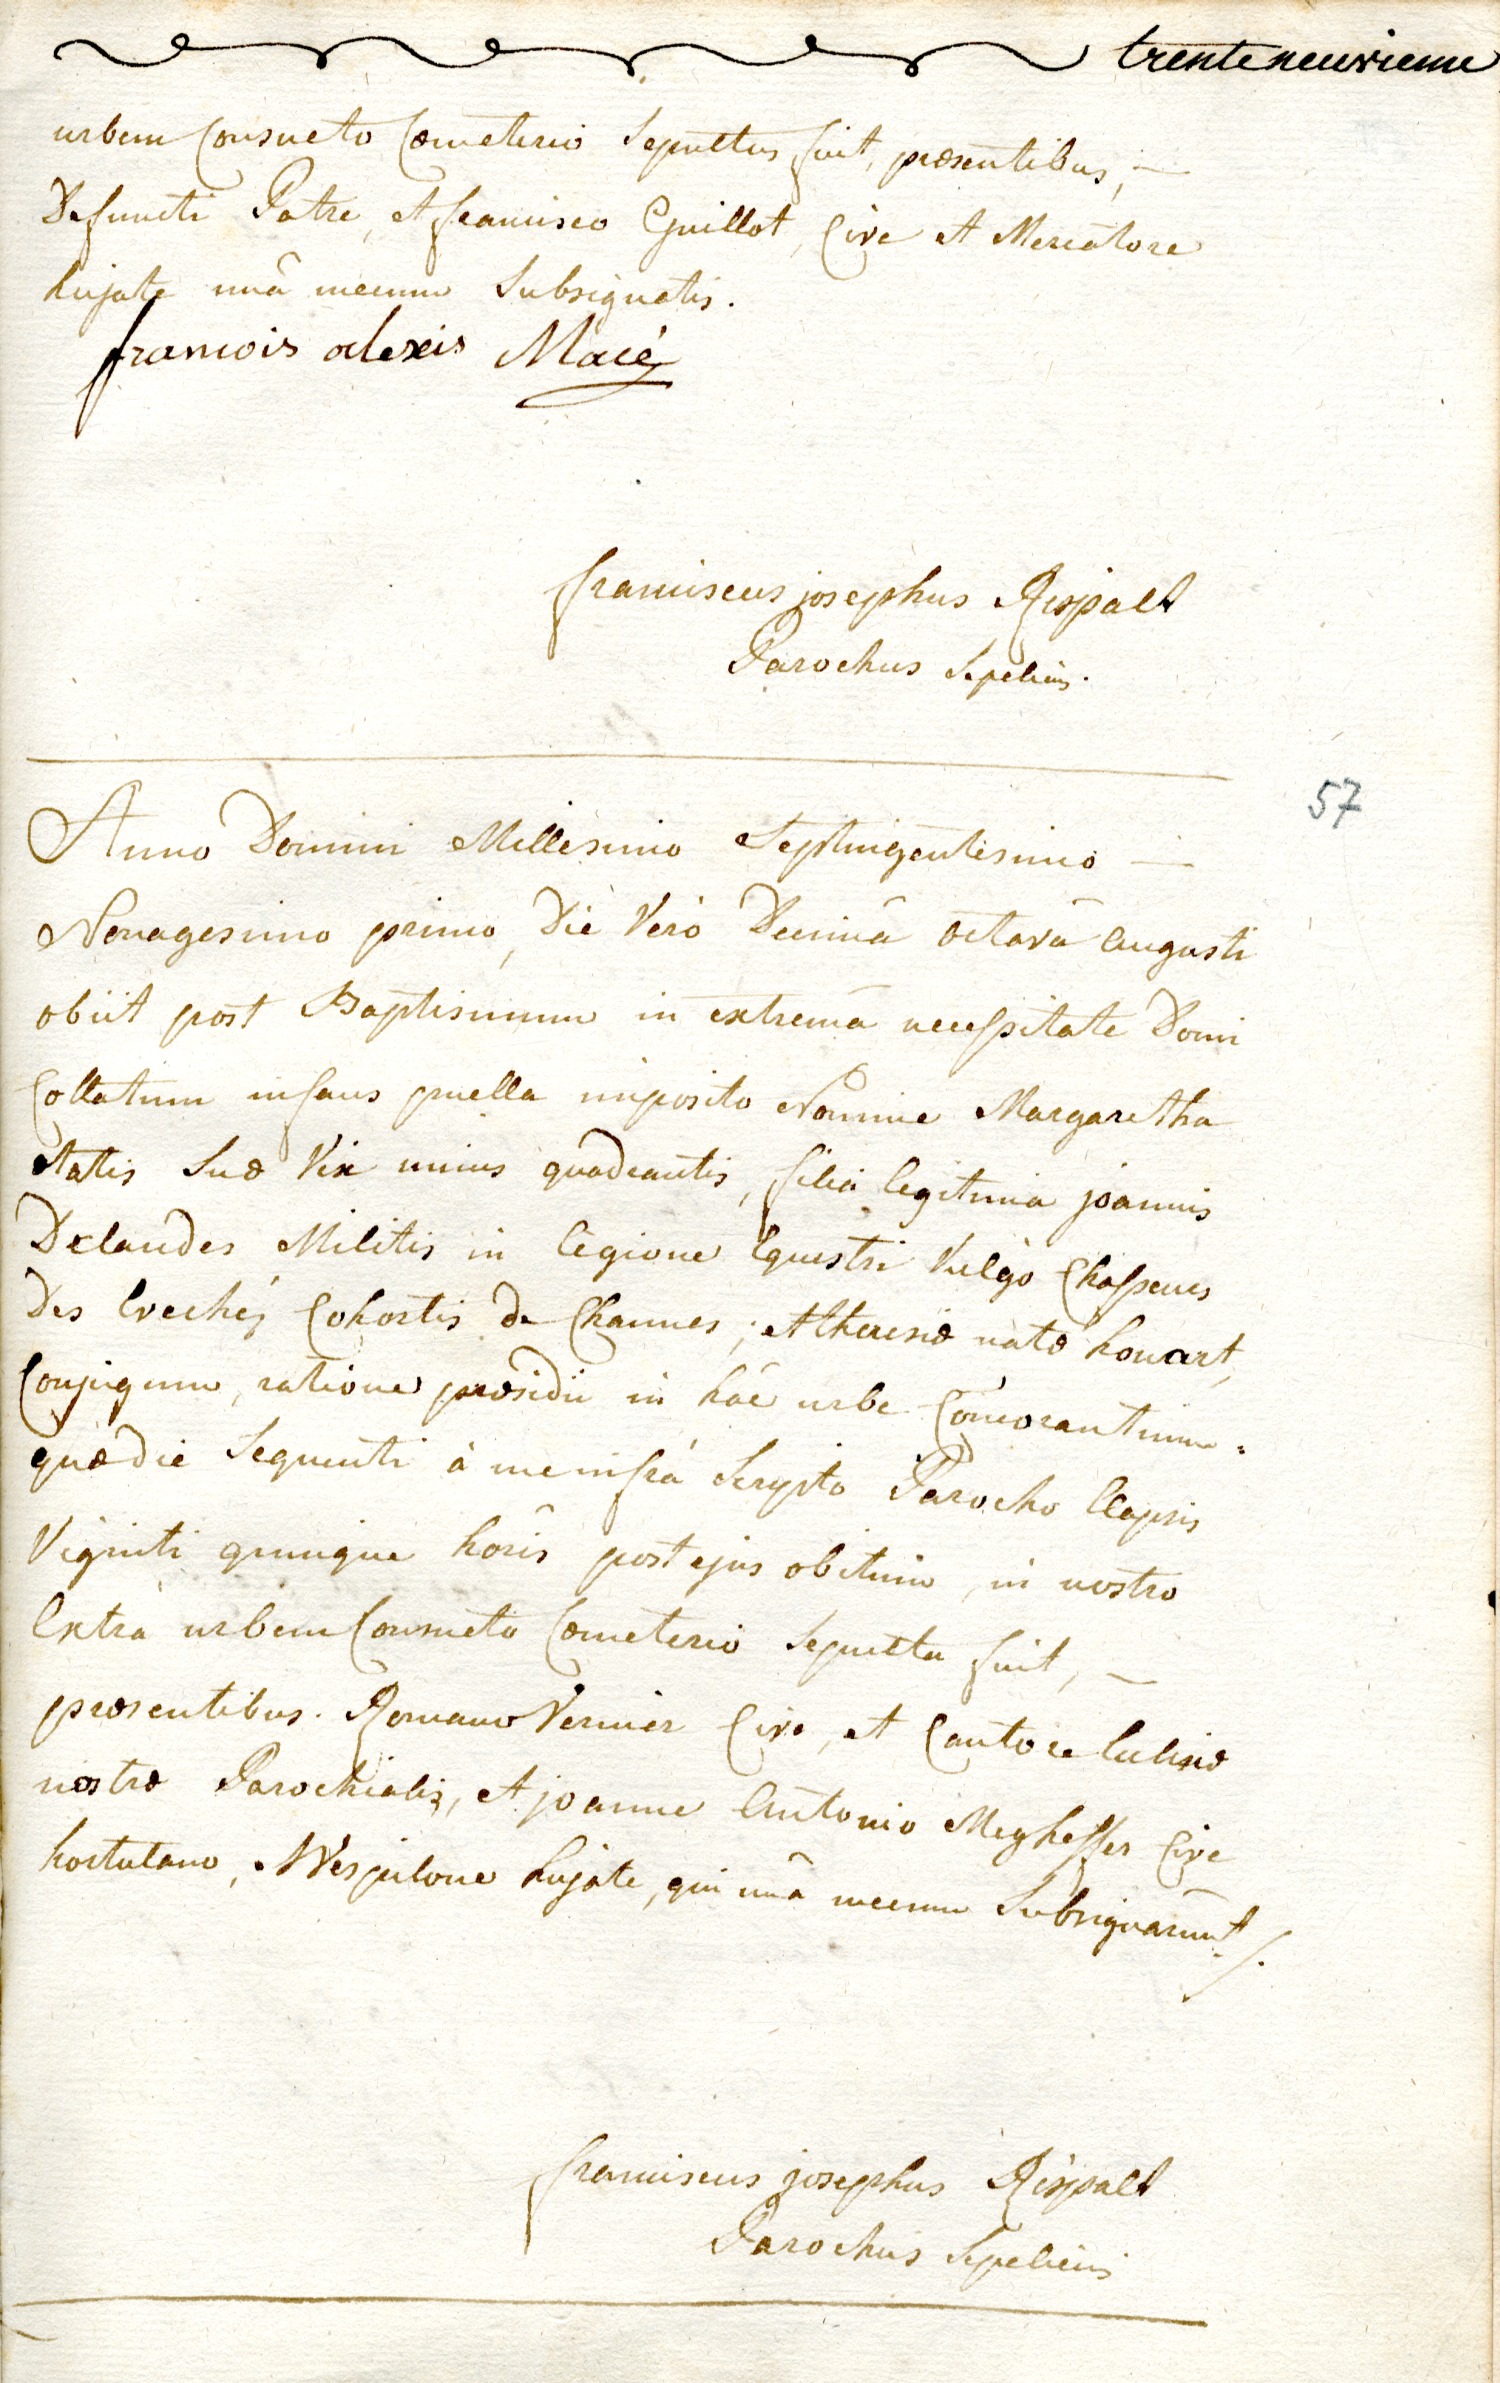 trente neuvieme
urbem Consueto Cœmeterio Sepultus fuit, præsentibus, —
Defuncti Patre, et francisco Guillot, Cive et Mercatore
hujate unâ mecum Subsignatis.
francois alexis Macé
franciscus josephus Rispalt
Parochus Sepeliens.
57
Anno Domini Millesimo Septingentesimo —
Nonagesimo primo, Die Verò Decimâ octavâ augusti
obiit post Baptismum in extremâ necessitate Domi
Collatum infans puella imposito Nomine Margaretha
ætatis Suæ Vix unius quadrantis, filia legitima joannis
Delandes Militis in legione Equestri Vulgò Chasseurs
Des Evechés Cohortis de Channes, et theresiæ natæ houart,
Conjugum, ratione præsidii in hâc urbe Com̄orantium.
quæ die Sequenti à me infrà Scripto Parocho Elapsis
Viginti quinque horis post ejus obitum, in nostro
Extrà urbem Consueto Cœmeterio Sepulta fuit, —
præsentibus. Romano Vernier Cive, et Cantore Ecclesiæ
nostræ Parochialis, et joanne Antonio Megheffer Cive
hortulano, Wespilone hujate, qui unâ mecum Subsignarunt ./.
franciscus josephus Rispalt
Parochus Sepeliens